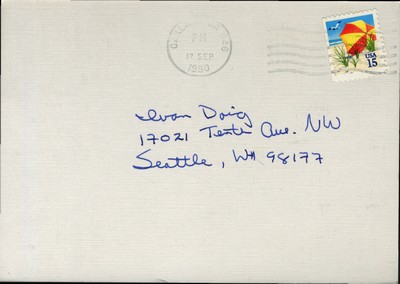 PM
17 SEP
1990
USA
15
Ivan Doig
17021 Tenth Ave. NW
Seattle, WA 98177